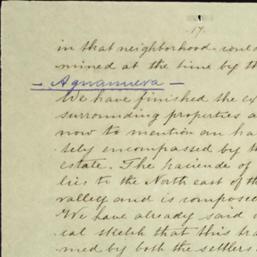 17.
in that neighborhood could
mined at the time by th
- Aguanueva -
We have finished the ex
surrounding properties a
now to mention an ha
tely encompassed by th
estate. The hacienda of
lies to the North east of th
valley and is compose
We have already said i
cal sketch that this ha
med by both the settlers